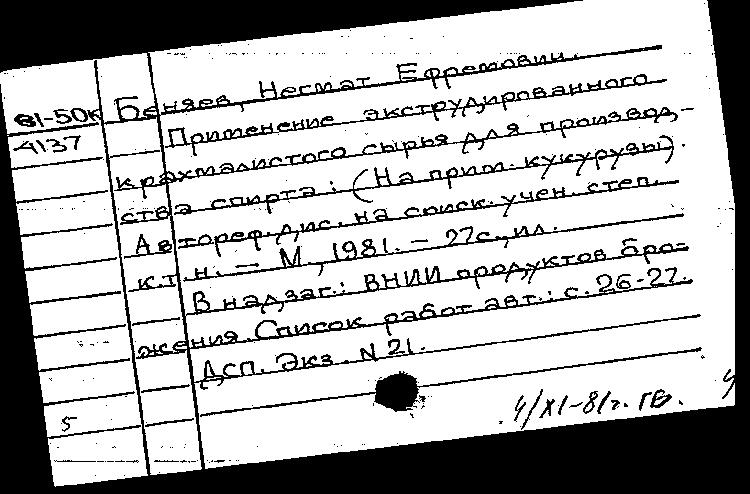 81-50К Беняев, Несмат Ефремович.
4137 Применение экструдированного
крахмалистого сырья для производ-
ства спирта: (На прим. кукурузы).
Автореф. дис. на соиск. учен. степ.
к.т.н. - М., 1981. - 27с., ил.
В надзаг.: ВНИИ продуктов бро-
жения. Список работ авт.: с. 26-27.
ДСП. Экз. N 21.
5
4/XI-81г. ГВ.